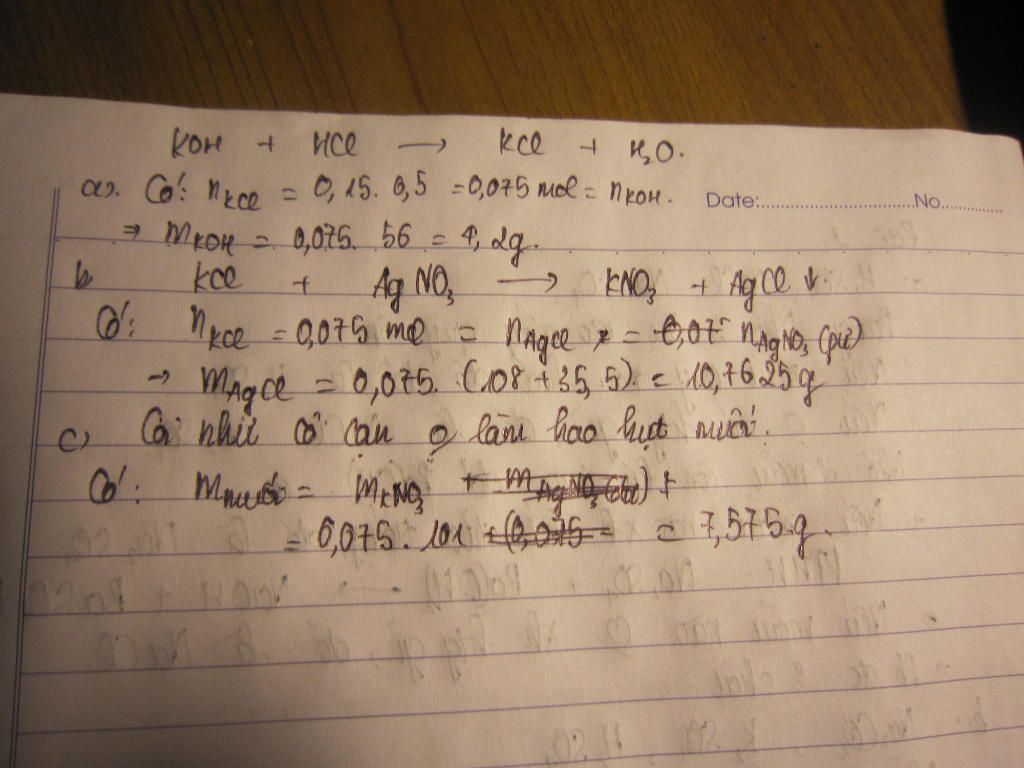 KOH + HCl → KCl + H₂O.
a). Có: nKCl = 0,15. 0,5 = 0,075 mol = nKOH. Date:..............................No............
⇒ mKOH = 0,075. 56 = 4,2g.
b KCl + AgNO₃ → KNO₃ + AgCl ↓.
Có: nKCl = 0,075 mol = nAgCl = 0,07 nAgNO₃ (pư)
→ mAgCl = 0,075. (108 + 35,5). = 10,7625g
c) Coi như cô cạn làm hao hụt muối.
Có: mmuối = mKNO₃ + mAgNO₃(dư) +
= 0,075. 101 + (0,075 = = 7,575.g.